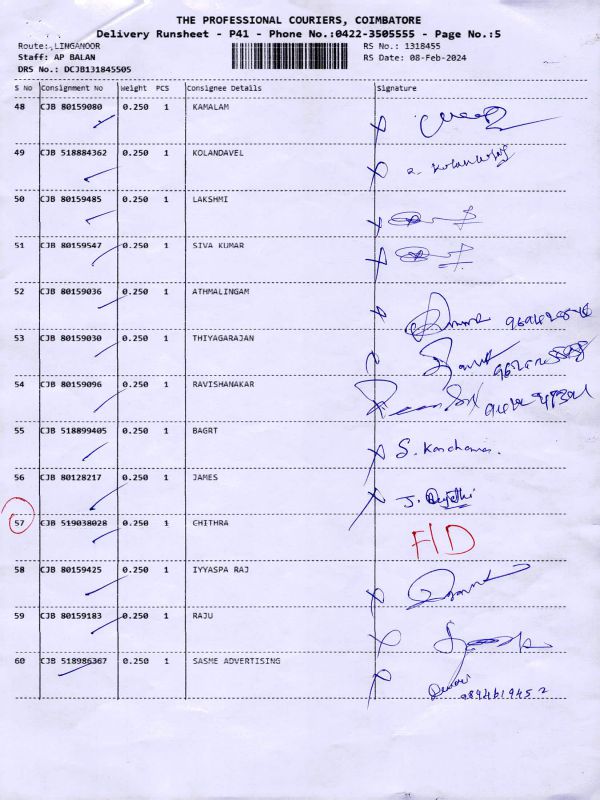 THE PROFESSIONAL COURIERS, COIMBATORE
Delivery Runsheet - P41 - Phone No.:0422-3505555 - Page No.:5
Route: LINGANOOR RS No.: 1318455
Staff: AP BALAN RS Date: 08-Feb-2024
DRS No.: DCJB131845505
S No Consignment No Weight PCS Consignee Details Signature
48 CJB 80159080 0.250 1 KAMALAM
49 CJB 518884362 0.250 1 KOLANDAVEL
50 CJB 80159485 0.250 1 LAKSHMI
51 CJB 80159547 0.250 1 SIVA KUMAR
52 CJB 80159036 0.250 1 ATHMALINGAM
53 CJB 80159030 0.250 1 THIYAGARAJAN
54 CJB 80159096 0.250 1 RAVISHANAKAR
55 CJB 518899405 0.250 1 BAGRT
S.
56 CJB 80128217 0.250 1 JAMES
J.
57 CJB 519038028 0.250 1 CHITHRA
58 CJB 80159425 0.250 1 IYYASPA RAJ
59 CJB 80159183 0.250 1 RAJU
60 CJB 518986367 0.250 1 SASME ADVERTISING
9894619452